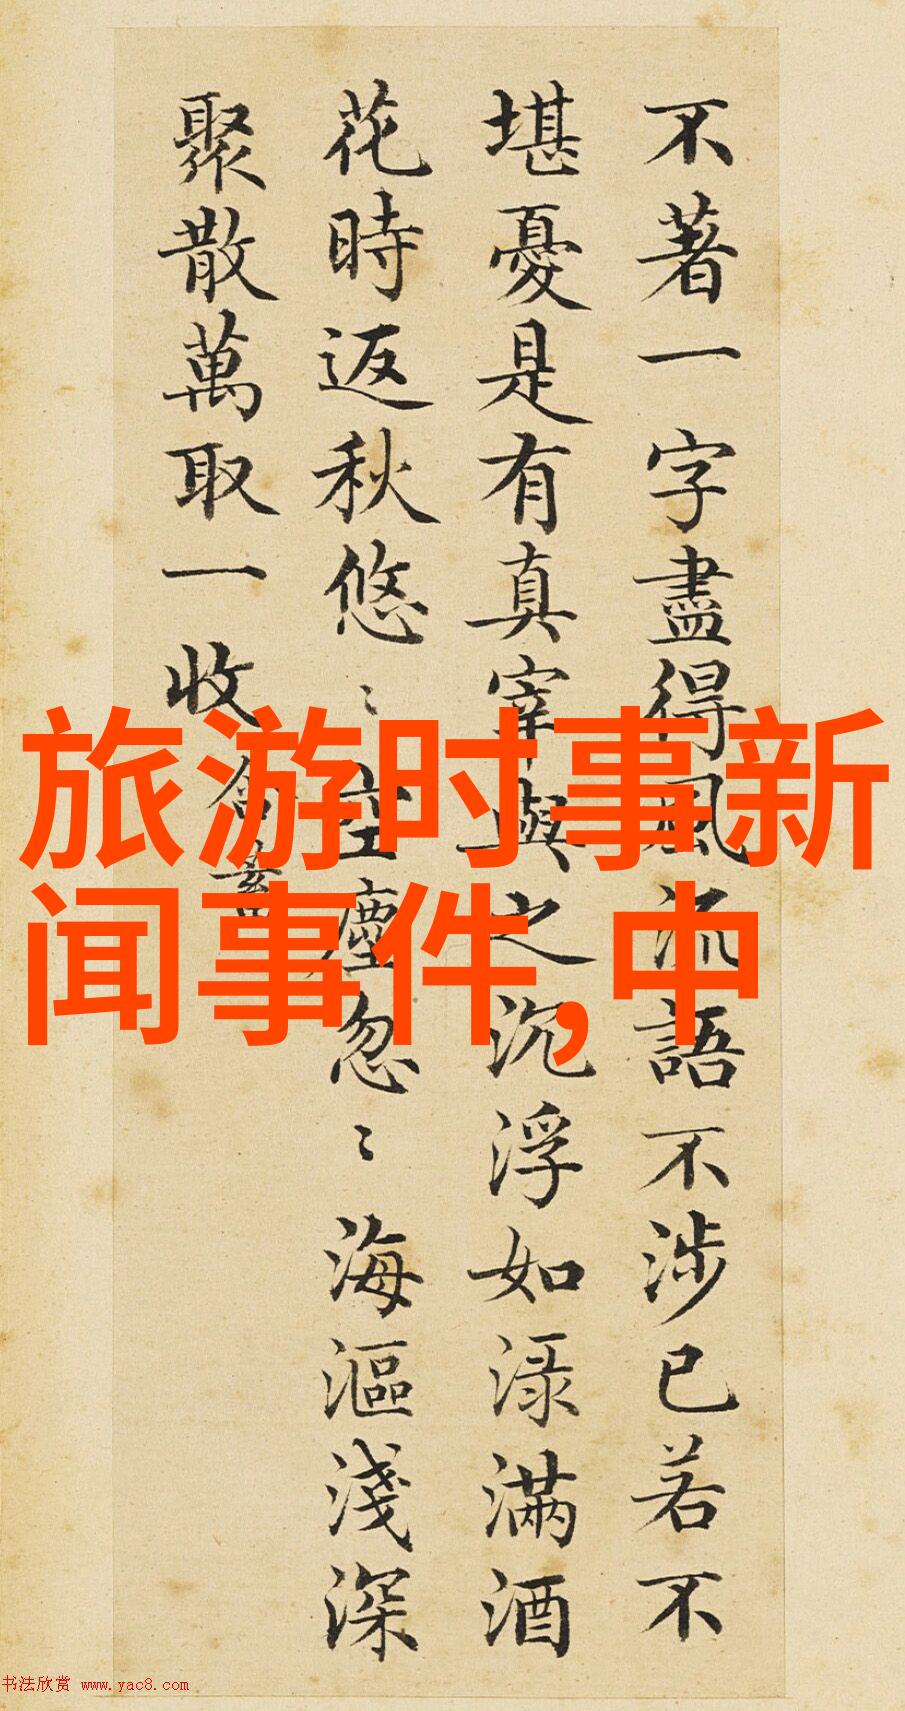 不著一字盡得風流語不涉已若不
堪憂是有真宰與之沉浮如渌滿酒
花時返秋悠〻空塵忽〻海漚淺深
聚散萬取一收
旅游时事新
闻事件,中
书法欣赏 www.yac8.com